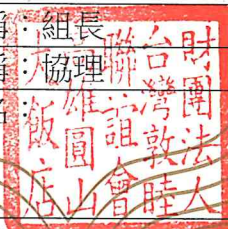 ：組長
：協理
：
財團法人
台灣敦睦
聯誼會
高雄圓山
大飯店